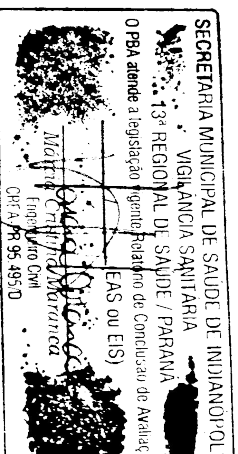 SECRETARIA MUNICIPAL DE SAÚDE DE INDIANÓPOL
VIGILÂNCIA SANITÁRIA
13ª REGIONAL DE SAÚDE / PARANÁ
O PBA atende a legislação vigente Relatório de Conclusão de Avaliaç
(EAS ou EIS)
Engenheiro Civil
CREA PR 95.495/D